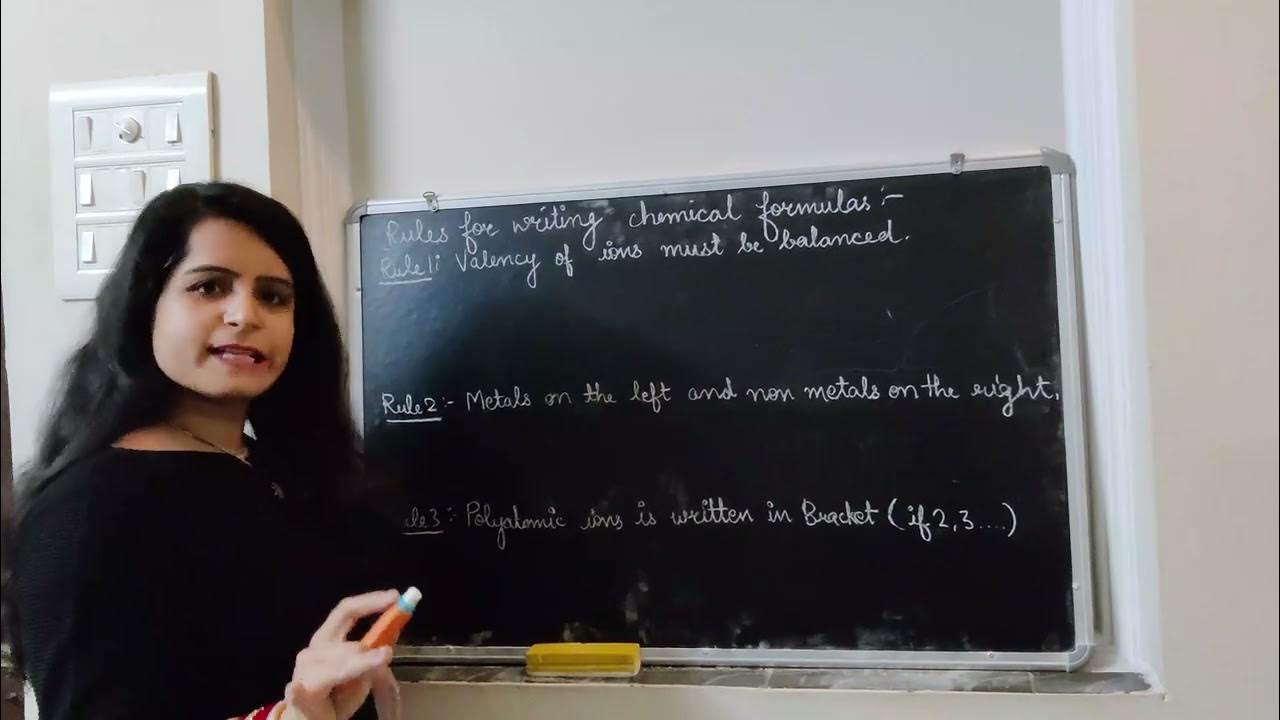 Rules for writing chemical formulas :-
Rule 1: Valency of ions must be balanced.
Rule 2 :- Metals on the left and non metals on the right.
ule 3 :- Polyatomic ions is written in Bracket (if 2, 3 ....)